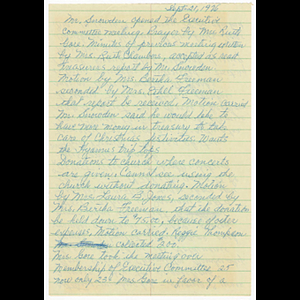 Sept-21, 1976
Mr. Snowden opened the Executive
Committee meeting. Prayer by Mrs. Ruth
Gore. Minutes of previous meeting written
by Mrs. Ruth Chambers, accepted as read
Treasurers report by Mr Snowden
Motion by Mrs. Bertha Freeman
seconded by Mrs. Ethel Freeman
that report be received, Motion carried
Mr Snowden said he would like to
have more money in treasury to take
care of Christmas festivities. Wants
trip tips
Donations to church where concerts
are given. Cannot see using the
church without donating. Motion
by Mrs. Laura B. Jones, seconded by
Mrs. Bertha Freeman that the donation
be held down to because of other
expenses, Motion carried. Reggie Thompson
collected 200.
Mrs Gore took the meeting over
Membership of Executive Committee. 25
now only 23. Mrs Gore in favor of a